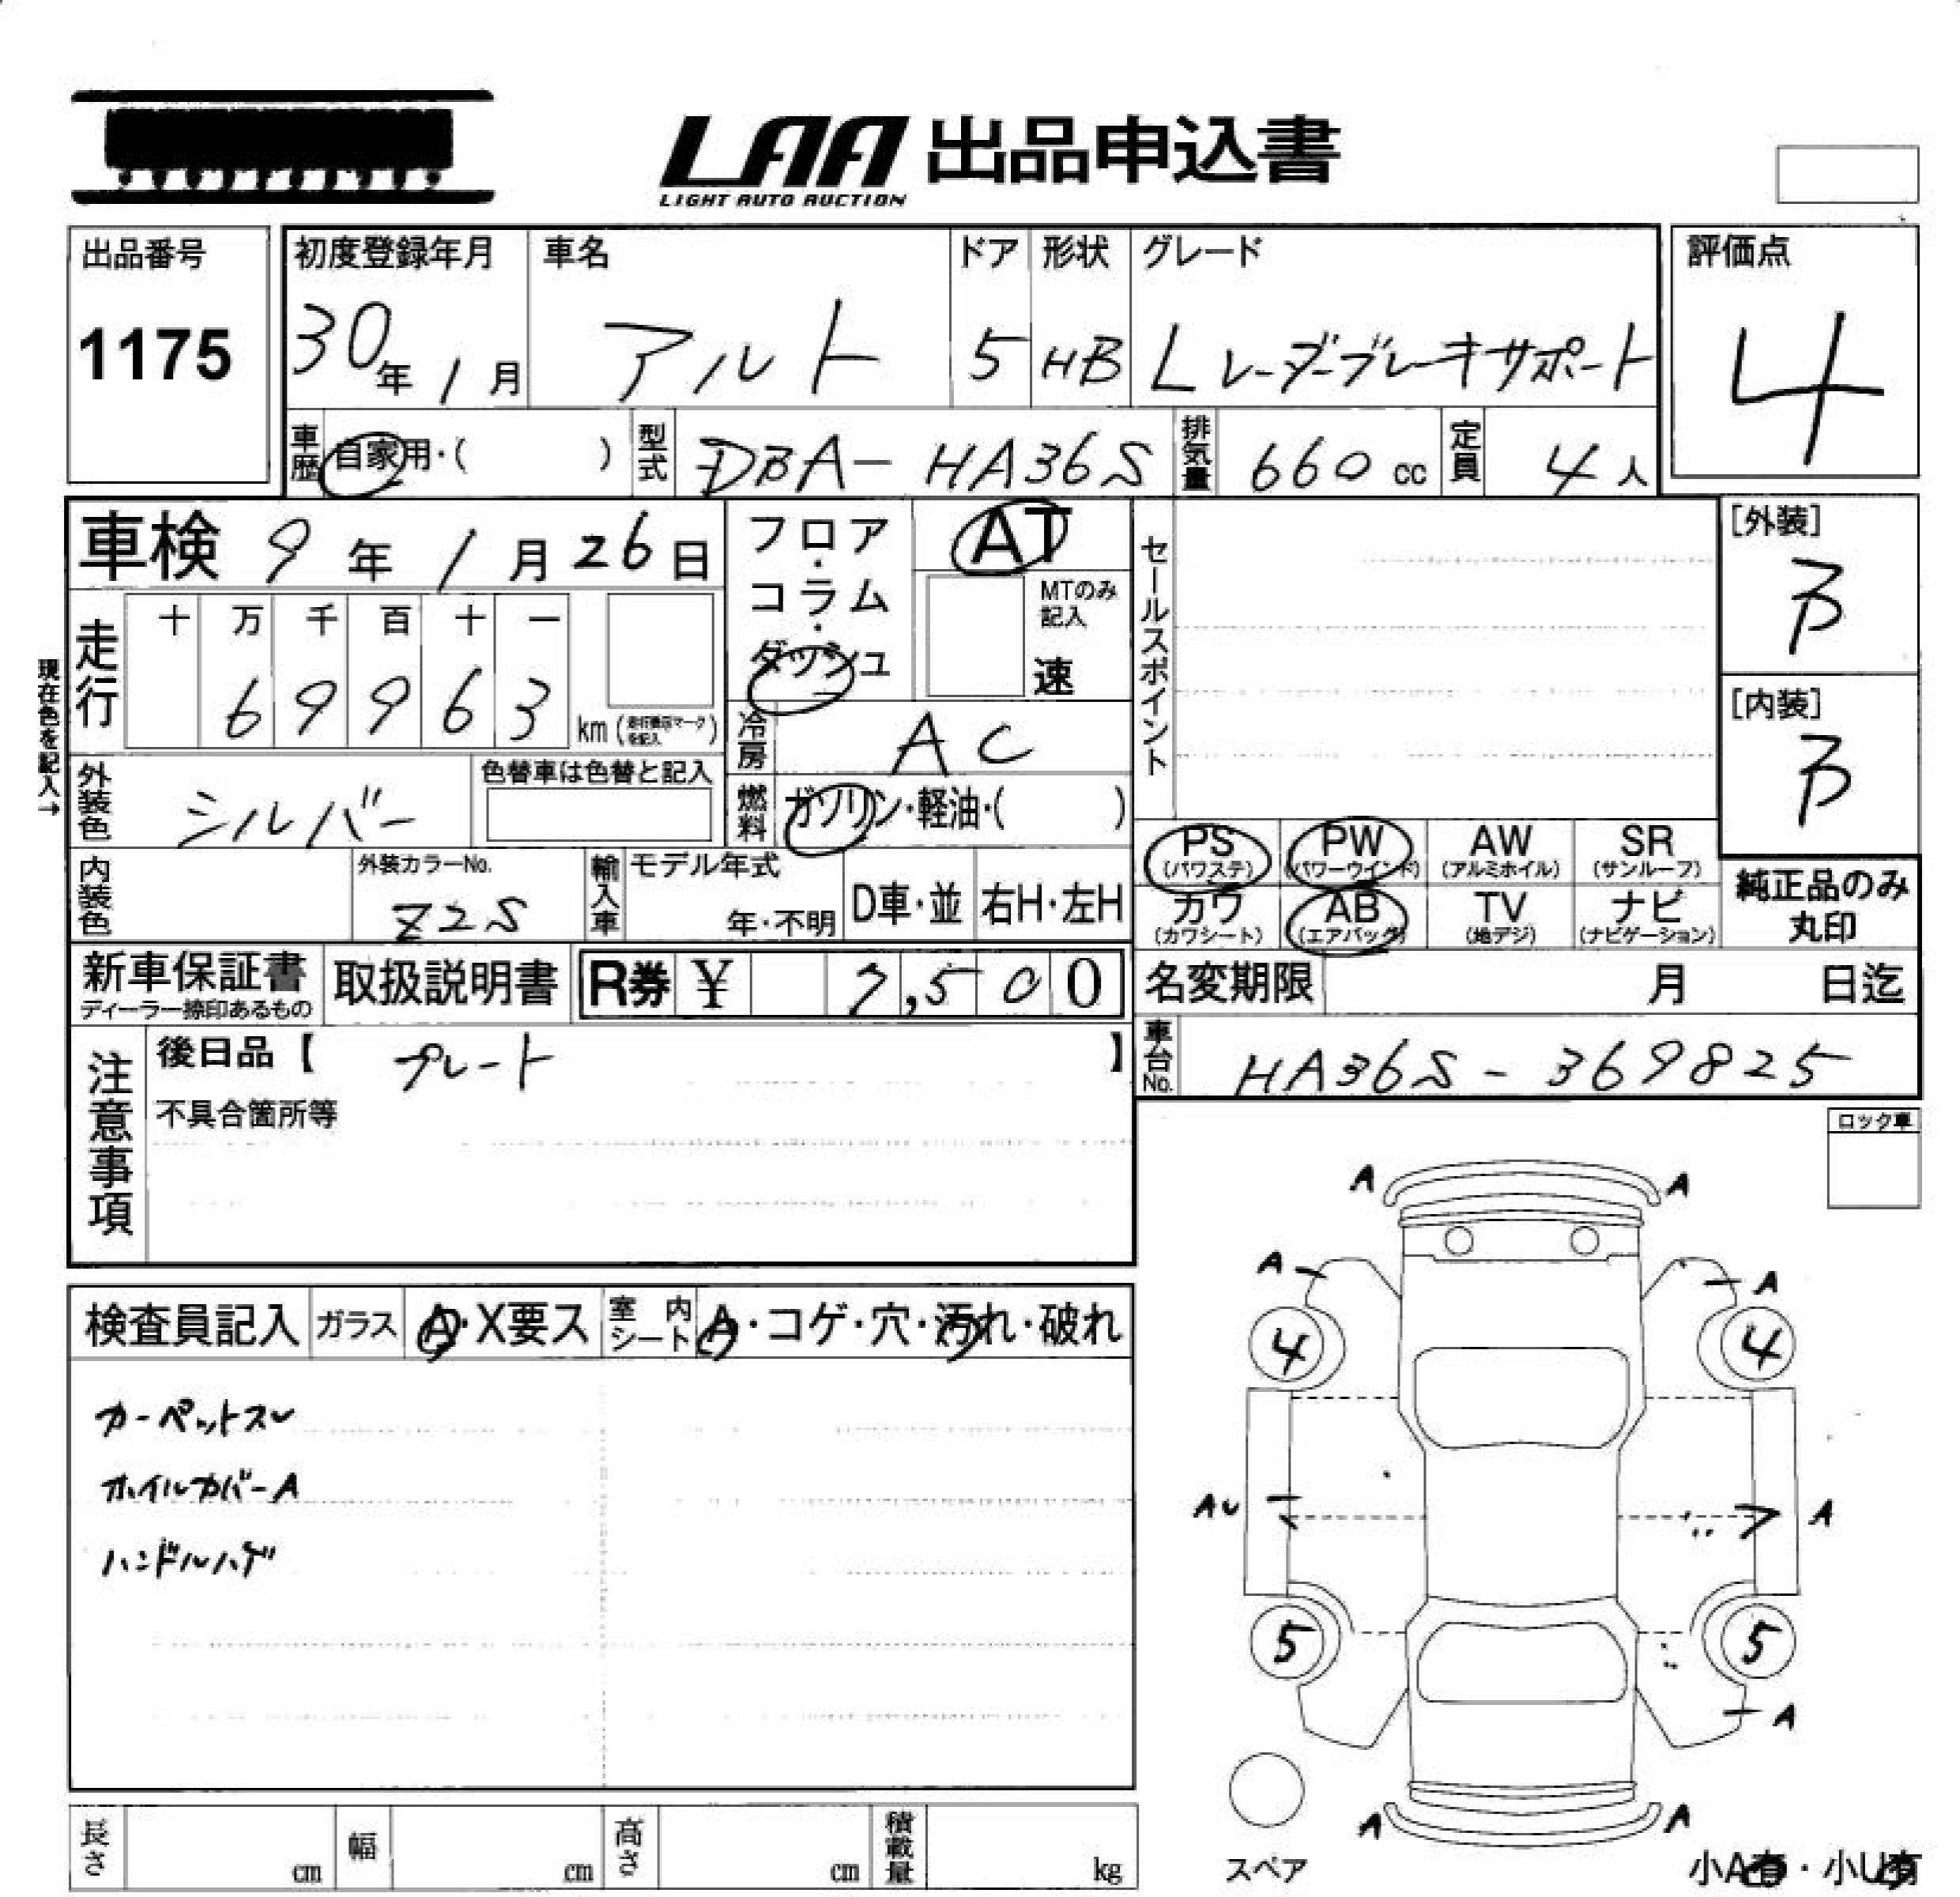 LAA 出品申込書
LIGHT AUTO AUCTION
出品番号
1175
初度登録年月
30年1月
車名
アルト
ドア
5
形状
HB
グレード
Lレーダーブレーキサポート
評価点
4
車歴
自家用・( )
型式
DBA-HA36S
排気量
660cc
定員
4人
車検 9年1月26日
フロア・コラム・ダッシュ
AT
MTのみ記入
速
セールスポイント
[外装]
B
現在色を記入→
走行
十 万 千 百 十 一
6 9 9 6 3
km(走行表示マークを記入)
[内装]
B
冷房
AC
外装色
シルバー
色替車は色替と記入
燃料
ガソリン・軽油・( )
PS
(パワステ)
PW
(パワーウインド)
AW
(アルミホイル)
SR
(サンルーフ)
内装色
外装カラーNo.
Z2S
輸入車
モデル年式
年・不明
D車・並
右H・左H
カワ
(カワシート)
AB
(エアバッグ)
TV
(地デジ)
ナビ
(ナビゲーション)
純正品のみ
丸印
新車保証書
ディーラー捺印あるもの
取扱説明書
R券 ¥ 7,500
名変期限 月 日迄
車台No.
HA36S-369825
注意事項
後日品【 プレート 】
不具合箇所等
ロック車
検査員記入
ガラス
A・X要ス
室内シート
A・コゲ・穴・汚れ・破れ
カーペットスレ
ホイルカバーA
ハンドルハゲ
A A
A A
4 4
AU A
5 5
A
A A
スペア
小A有・小U有
長さ cm
幅 cm
高さ cm
積載量 kg